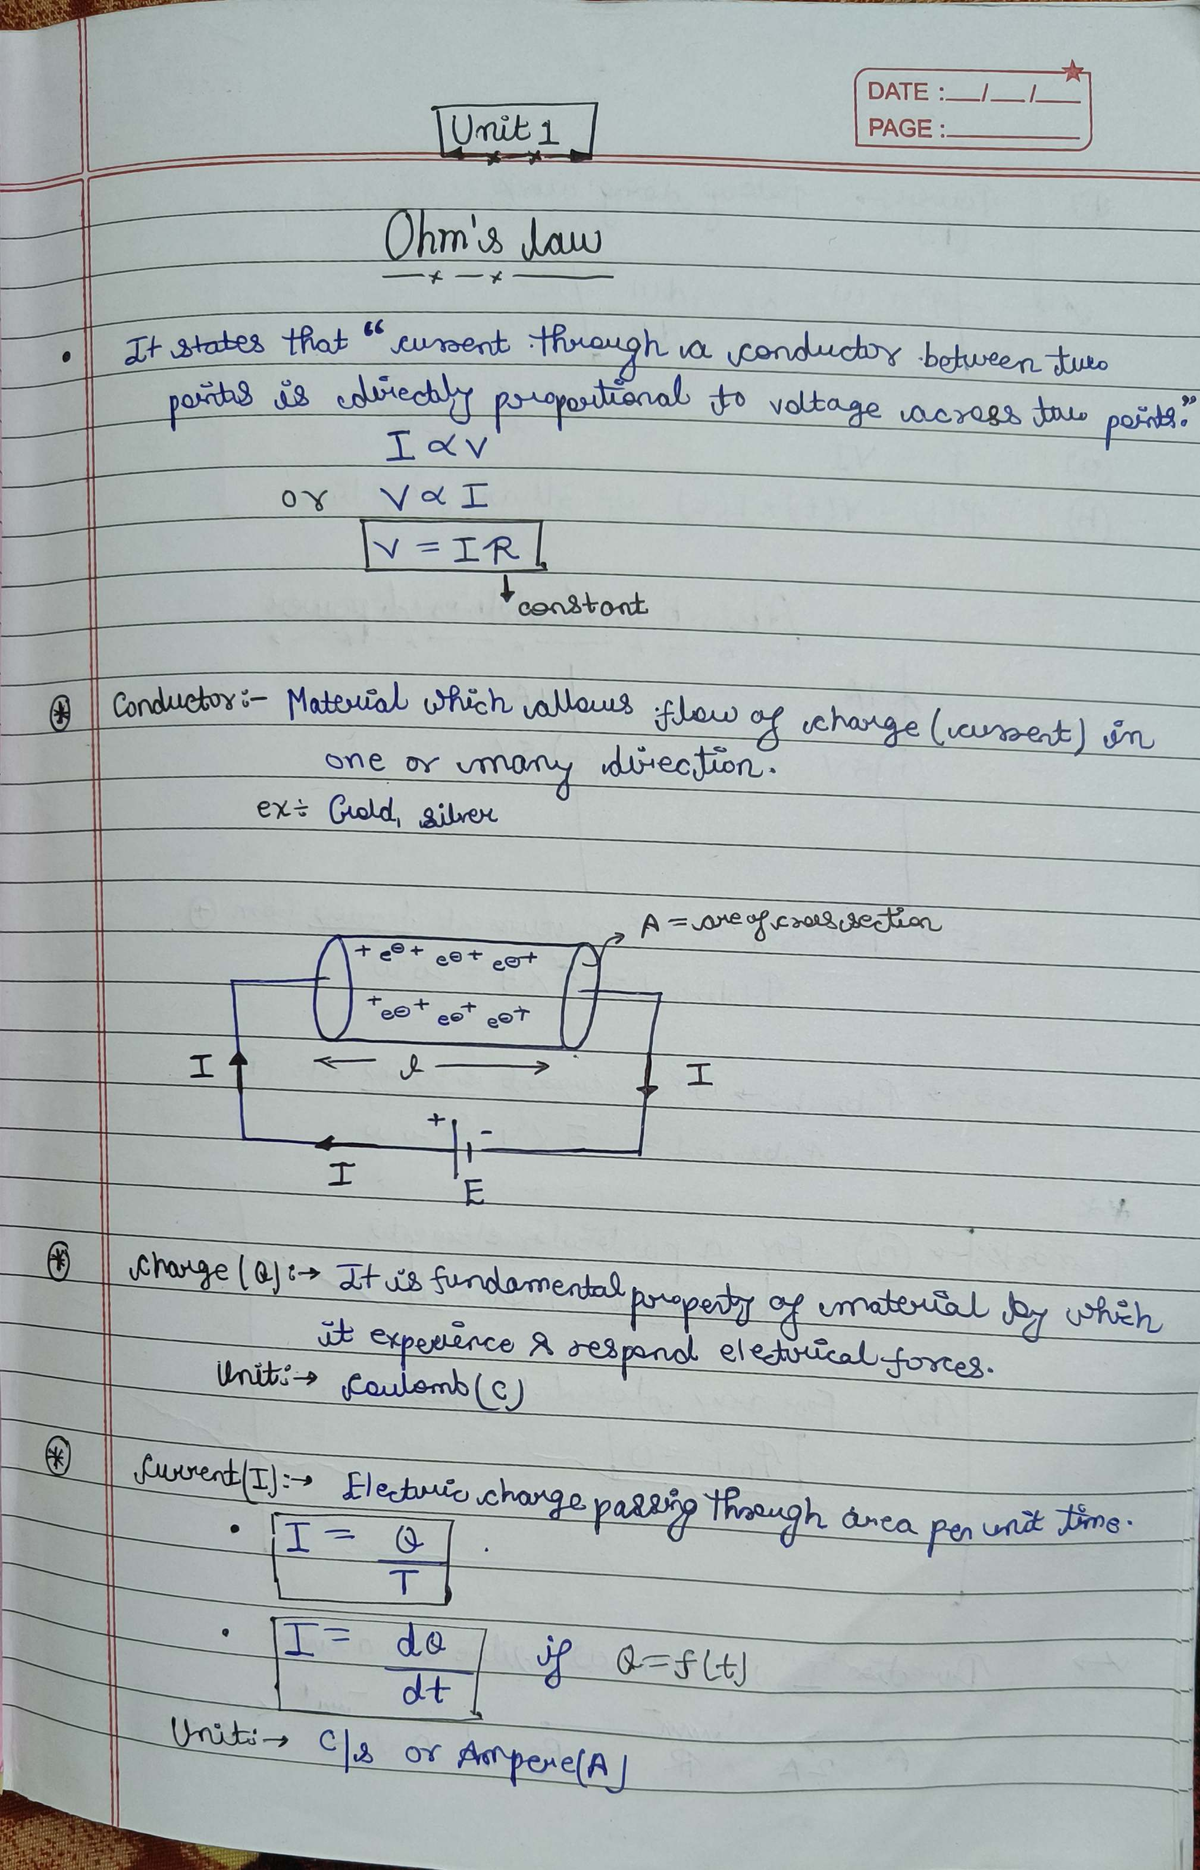 DATE :__/__/__
PAGE :______
Unit 1
Ohm's law
• It states that “current through a conductor between two
points is directly proportional to voltage across two points.”
I ∝ V
or V ∝ I
V = IR
↓ constant
⊛ Conductor :- Material which allows flow of charge (current) in
one or many direction.
ex÷ Gold, silver
A = are of cross section
+ e⊖ + e⊖ + e⊖ +
+ e⊖ + e⊖ + e⊖ +
← l →
I
I
+ -
I
E
⊛ charge (Q) :→ It is fundamental property of material by which
it experience & respond electrical forces.
Unit :→ Coulomb (C)
⊛ Current (I) :→ Electric charge passing through area per unit time.
• I = Q/T
• I = dQ/dt if Q = f(t)
Unit :→ C/s or Ampere(A)